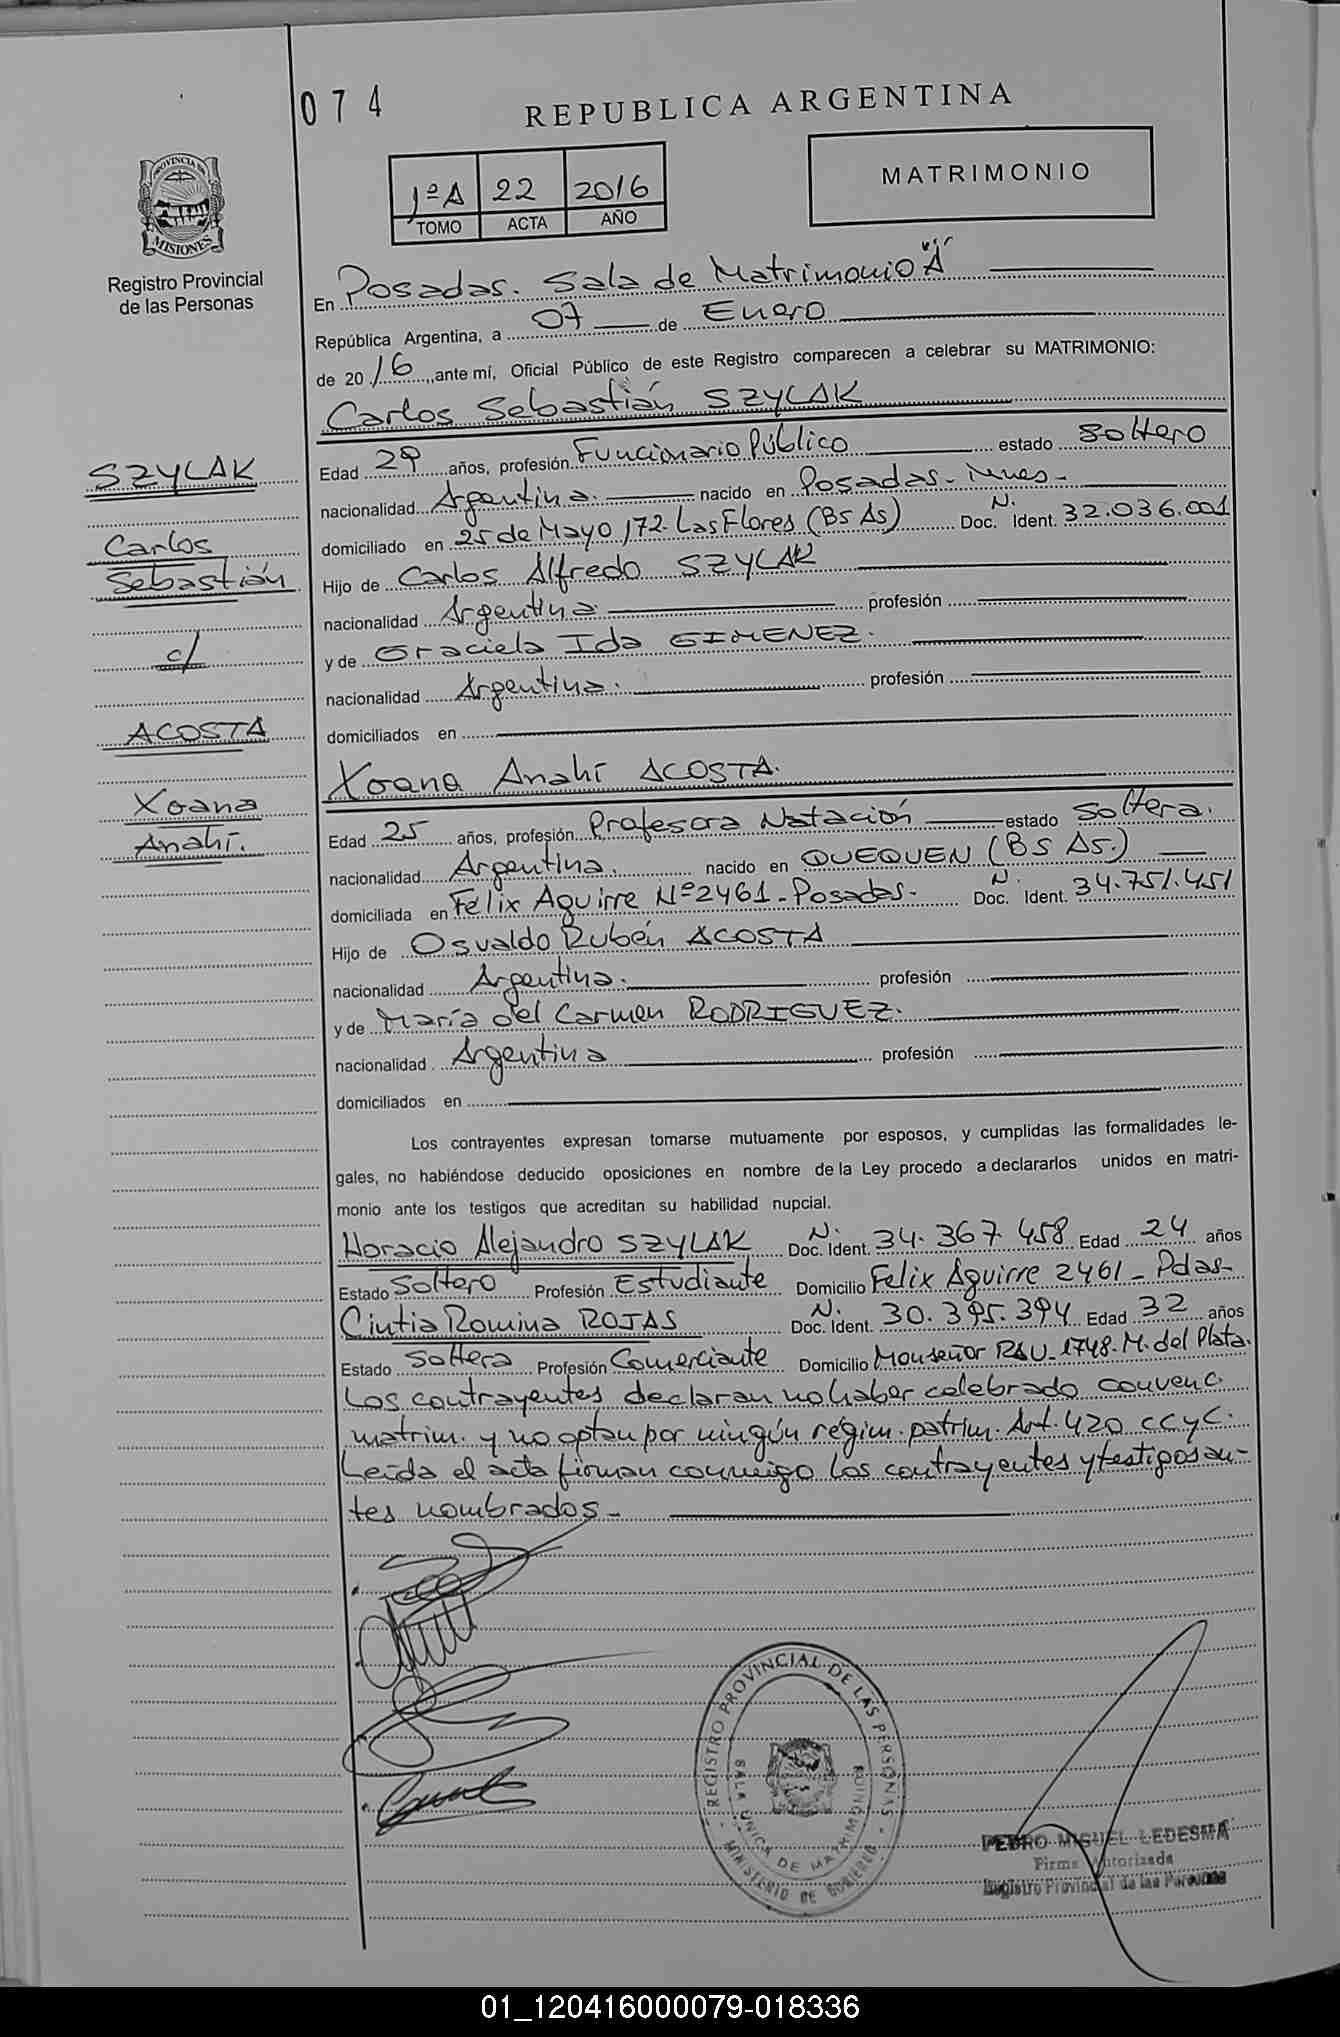 074
REPUBLICA ARGENTINA
PROVINCIA DE
MISIONES
Registro Provincial
de las Personas
1ºA 22 2016
TOMO ACTA AÑO
MATRIMONIO
En Posadas. Sala de Matrimonio "A"
República Argentina, a 07 de Enero
de 2016, ante mí, Oficial Público de este Registro comparecen a celebrar su MATRIMONIO:
Carlos Sebastián SZYLAK
SZYLAK
Carlos
Sebastián
c/
ACOSTA
Xoana
Anahí.
Edad 29 años, profesión Funcionario Público estado Soltero
nacionalidad Argentina. nacido en Posadas - Mnes -
domiciliado en 25 de Mayo 172. Las Flores (Bs As) Doc. N. Ident. 32.036.001
Hijo de Carlos Alfredo SZYLAK
nacionalidad Argentina. profesión
y de Graciela Ida GIMENEZ.
nacionalidad Argentina. profesión
domiciliados en
Xoana Anahí ACOSTA.
Edad 25 años, profesión Profesora Natación estado Soltera.
nacionalidad Argentina. nacido en QUEQUEN (BS AS.)
domiciliada en Felix Aguirre Nº 2461 - Posadas. Doc. N. Ident. 34.751.451
Hijo de Osvaldo Rubén ACOSTA
nacionalidad Argentina. profesión
y de María del Carmen RODRIGUEZ.
nacionalidad Argentina profesión
domiciliados en
Los contrayentes expresan tomarse mutuamente por esposos, y cumplidas las formalidades le-
gales, no habiéndose deducido oposiciones en nombre de la Ley procedo a declararlos unidos en matri-
monio ante los testigos que acreditan su habilidad nupcial.
Horacio Alejandro SZYLAK Doc. N. Ident. 34.367.458 Edad 24 años
Estado Soltero Profesión Estudiante Domicilio Felix Aguirre 2461 - Pdas-
Cintia Romina ROJAS Doc. N. Ident. 30.395.394 Edad 32 años
Estado Soltera Profesión Comerciante Domicilio Monseñor RAU - 1748. M. del Plata.
Los contrayentes declaran no haber celebrado convenc.
matrim. y no optan por ningún régim. patrim. Art. 420 CCyC.
Leída el acta firman conmigo los contrayentes y testigos an-
tes nombrados -
REGISTRO PROVINCIAL DE LAS PERSONAS
SALA UNICA DE MATRIMONIO
MINISTERIO DE GOBIERNO
PEDRO MIGUEL LEDESMA
Firma Autorizada
Registro Provincial de las Personas
01_120416000079-018336